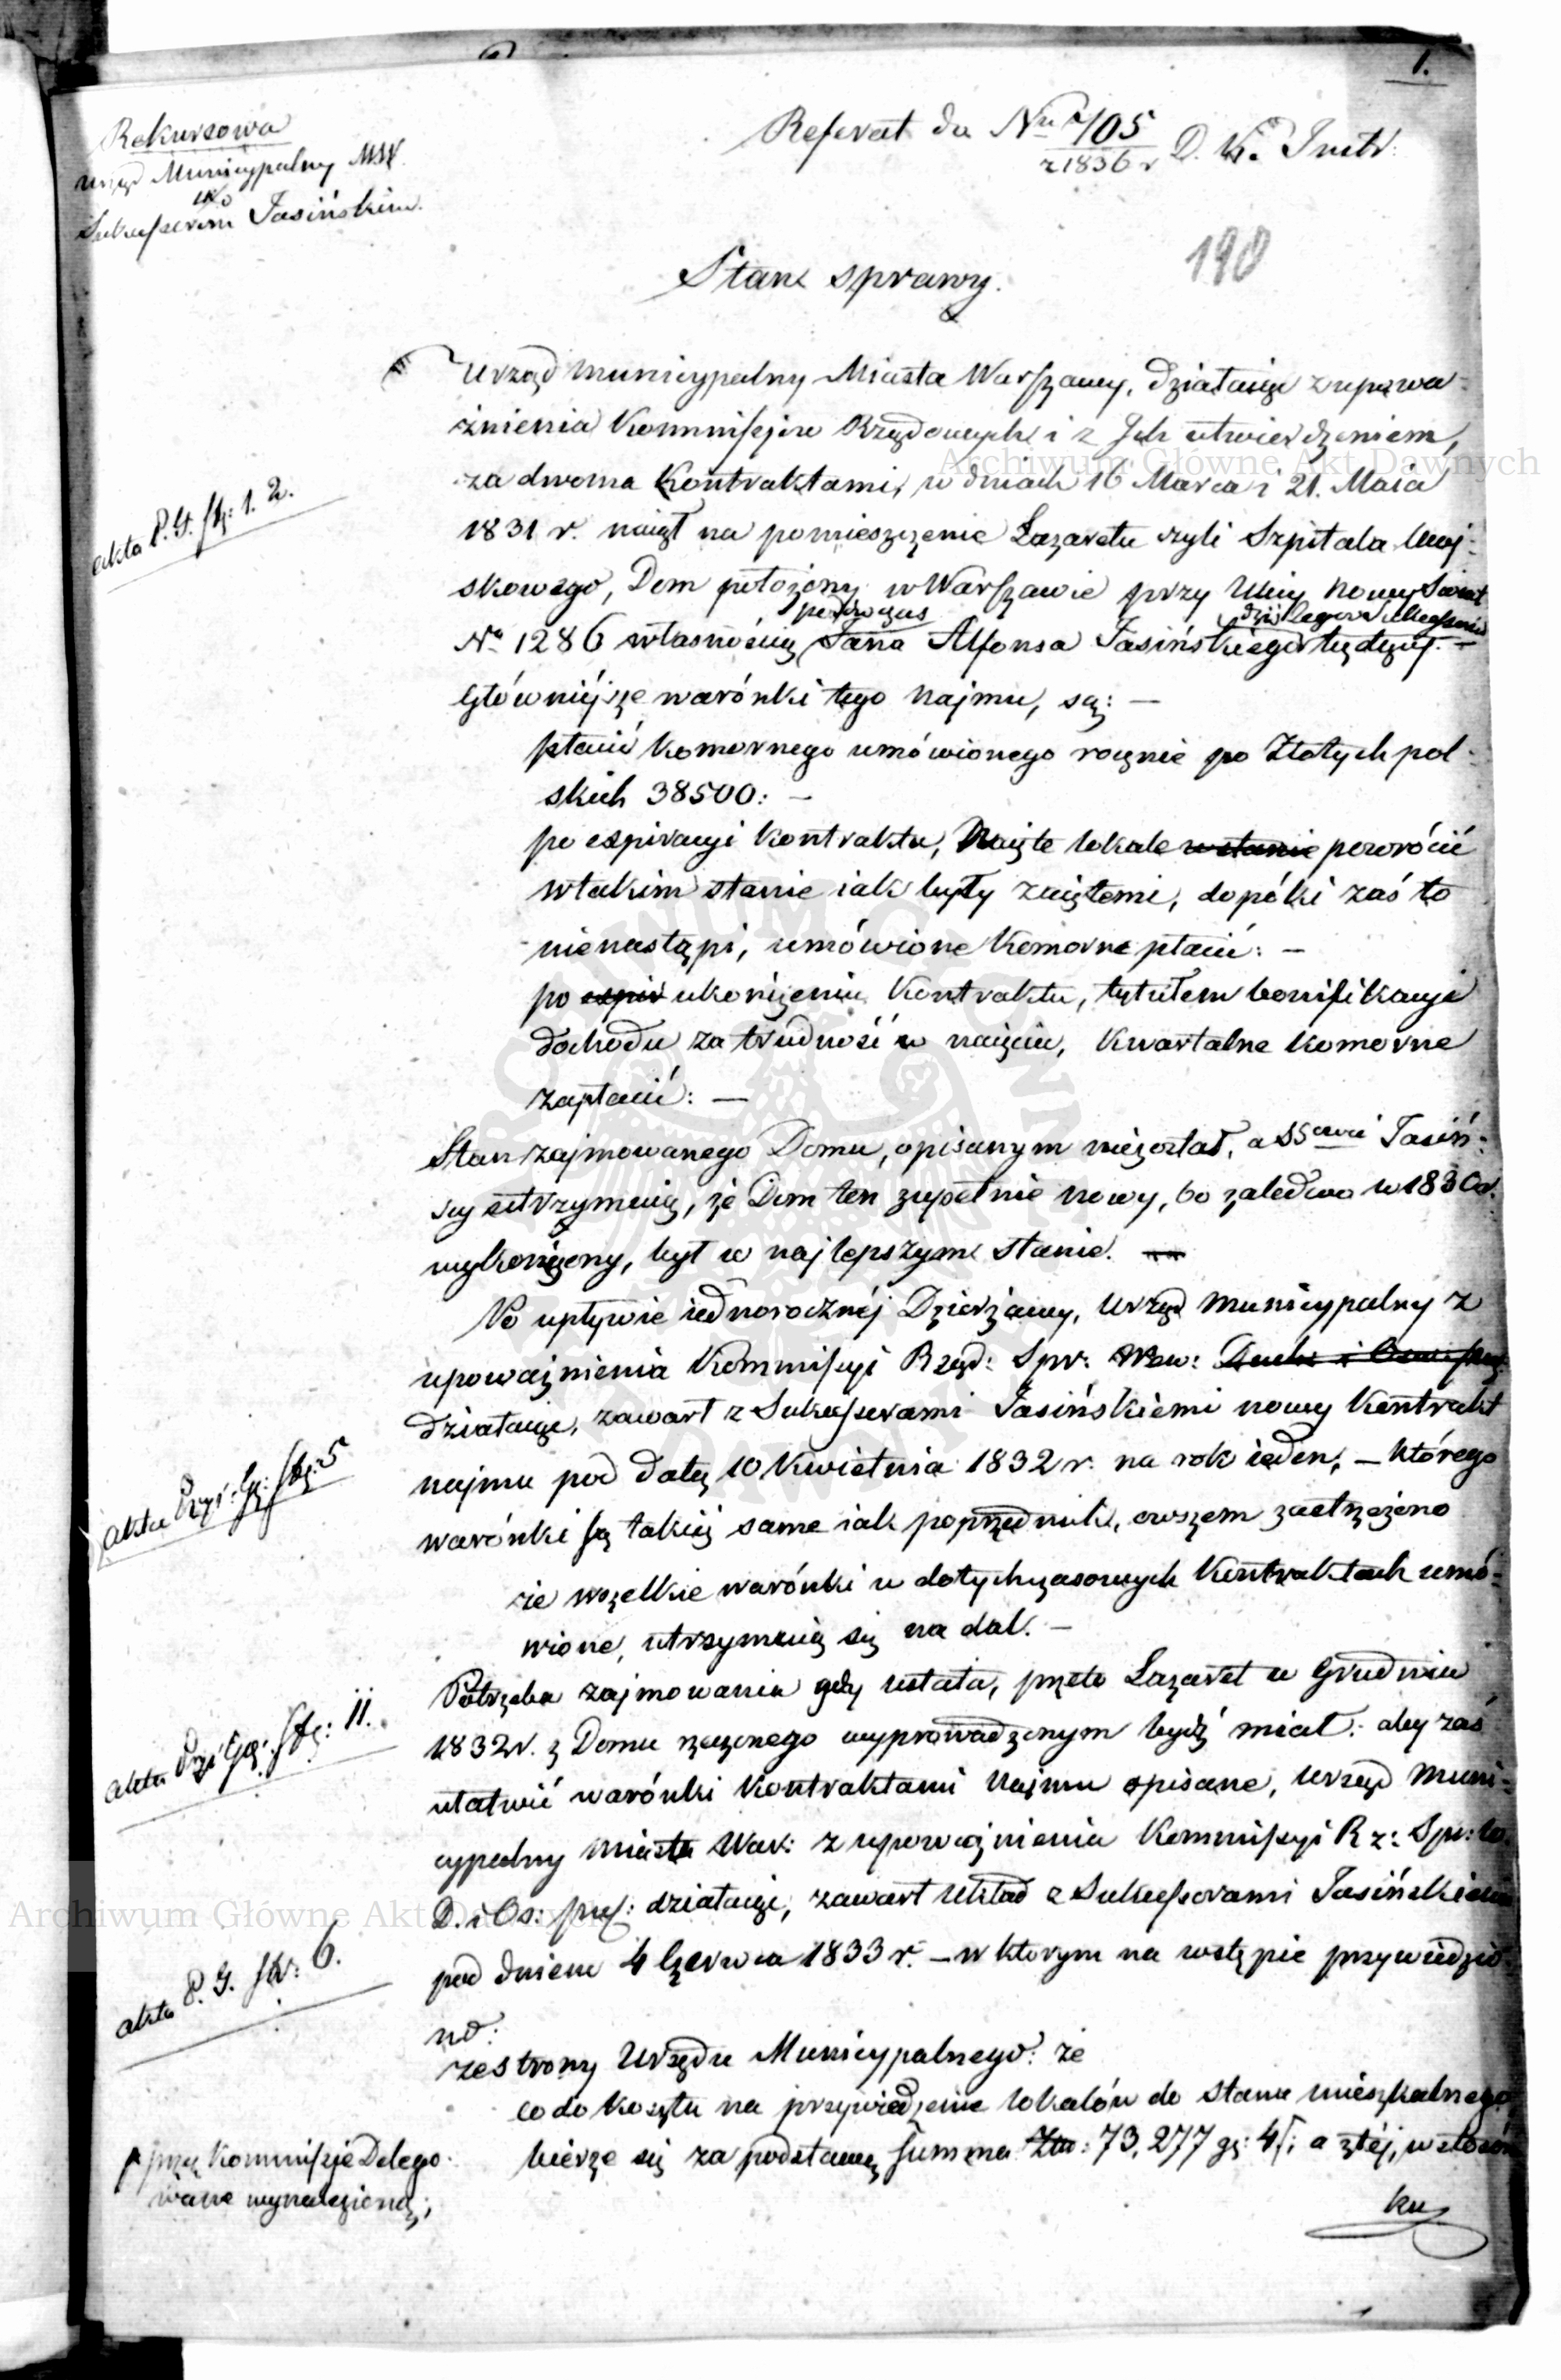 1.
Rekursowa
Urząd Municypalny MSW.
c/o
Sukcessorom Jasińskim.
Referat do Nru 2/105 D. K. Instr:
z 1836 r
190
Stan sprawy.
Urząd Municypalny Miasta Warszawy, działając z upowa-
żnienia Kommissjów Rządowych i z Ich utwierdzeniem,
akta P. G. str: 1. 2.
za dwoma Kontraktami, w dniach 16 Marca i 21. Maia
1831 r. naiął na pomieszczenie Lazaretu czyli Szpitala Woj-
skowego, Dom położony w Warszawie przy Ulicy Nowy Swiat
podówczas
dziś Sukcessorów
No 1286 własnością Jana Alfonsa Jasińskiego będący. —
Główniejsze warónki tego Najmu, są: —
płacić Komornego umówionego rocznie po Złotych pol-
skich 38500: —
po expiracyi Kontraktu, Naięte lokale w stanie powrócić
w takim stanie iak były zaiętemi, dopóki zaś to
nienastąpi, umówione Komorne płacić: —
po expir ukończeniu Kontraktu, tytułem bonifikacyi
dochodu za trudność w naięciu, Kwartalne Komorne
zapłacić: —
Stan zajmowanego Domu, opisanym niezostał, a SSorowie Jasiń-
scy utrzymuią, że Dom ten zupełnie nowy, bo zaledwo w 1830 r.
wykończony, był w najlepszym stanie.
Po upływie iednorocznéj Dzierżawy, Urząd Municypalny z
upoważnienia Kommissyi Rząd: Spr: Wew: Duch: i Oświe: Pub:
działając, zawarł z Sukcessorami Jasińskiemi nowy Kontrakt
akta Przi: Gł: str: 5
najmu pod datą 10 Kwietnia 1832 r. na rok ieden, — którego
warónki są takież same iak poprzednik, owszem zastrzeżono
że wszelkie warónki w dotychczasowych Kontraktach umó-
wione, utrzymuią się na dal. —
akta Przi Gł: str: 11.
Potrzeba zajmowania gdy ustała, przeto Lazaret w Grudniu
1832 r. z Domu rzeczonego wyprowadzonym bydź miał: aby zaś
ułatwić warónki Kontraktami Najmu opisane, Urząd Muni-
cypalny Miasta War: z upoważnienia Kommissyi Rz: Spr: W.
D. i Os: pub: działając, zawarł Układ z Sukcessorami Jasińskiemi
akta P. G. str: 6.
pod dniem 4 Czerwca 1833 r. — w ktorym na wstępie przywiedzio-
no:
ze strony Urzędu Municypalnego: że
co do kosztu na przywiedzenie lokalów do stanu mieszkalnego
bierze się za podstawę summa Złtu: 73,277 gr: 4 a ztéj, w stosun
przez Kommissje Delego-
wane wynalezioną;
ku
Archiwum Główne Akt Dawnych
Archiwum Główne Akt Dawnych